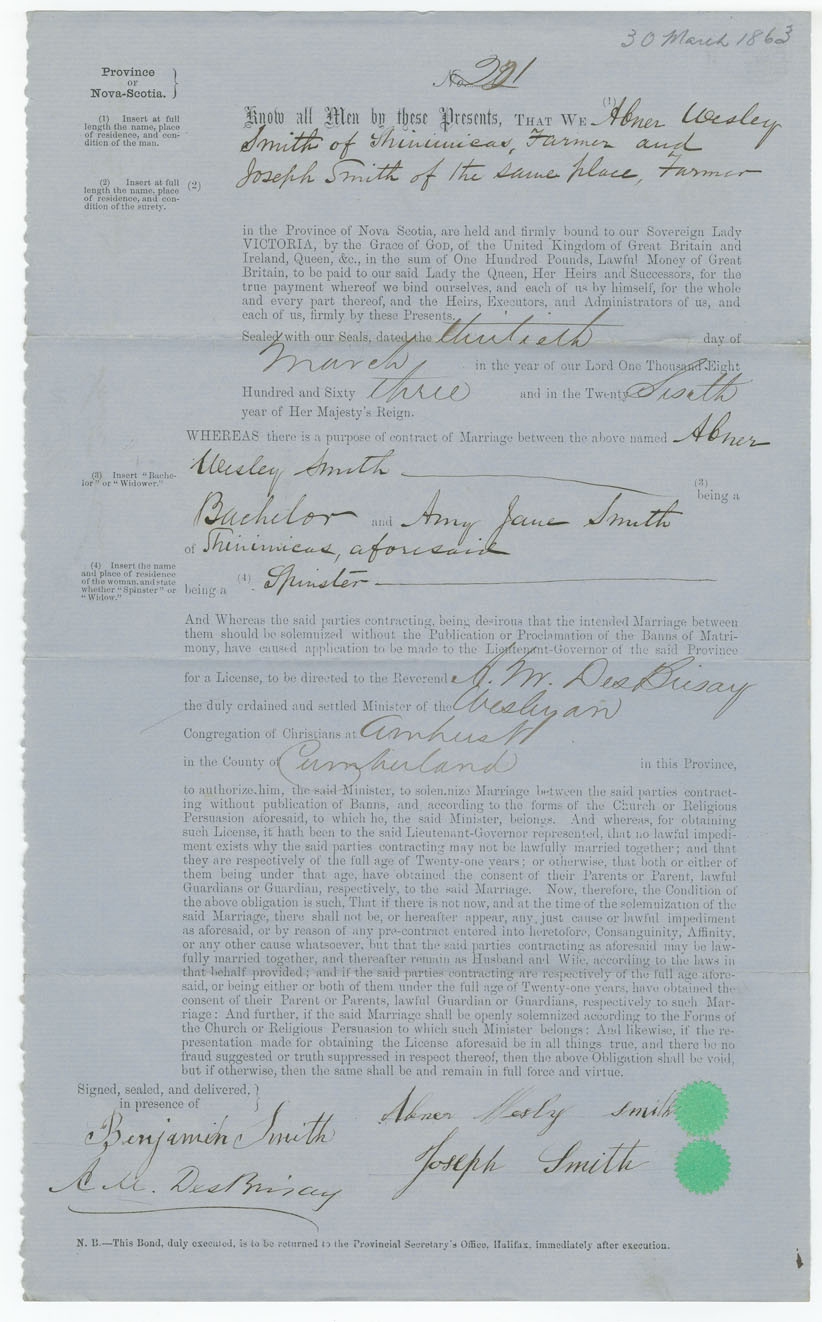 30 March 1863
Province
OF
Nova-Scotia.
No. 201
(1) Insert at full
length the name, place
of residence, and con-
dition of the man.
Know all Men by these Presents, THAT WE (1) Abner Wesley
Smith of Shinimicas, Farmer and
(2) Insert at full
length the name, place
of residence, and con-
dition of the surety.
(2) Joseph Smith of the same place, Farmer
in the Province of Nova Scotia, are held and firmly bound to our Sovereign Lady
VICTORIA, by the Grace of GOD, of the United Kingdom of Great Britain and
Ireland, Queen, &c., in the sum of One Hundred Pounds, Lawful Money of Great
Britain, to be paid to our said Lady the Queen, Her Heirs and Successors, for the
true payment whereof we bind ourselves, and each of us by himself, for the whole
and every part thereof, and the Heirs, Executors, and Administrators of us, and
each of us, firmly by these Presents.
Sealed with our Seals, dated the thirtieth day of
March in the year of our Lord One Thousand Eight
Hundred and Sixty three and in the Twenty Sixth
year of Her Majesty's Reign.
WHEREAS there is a purpose of contract of Marriage between the above named Abner
Wesley Smith
(3) Insert "Bache-
lor" or "Widower."
(3)
being a
Bachelor and Amy Jane Smith
of Shinimicas, aforesaid
(4) Insert the name
and place of residence
of the woman, and state
whether "Spinster" or
"Widow."
being a (4) Spinster
And Whereas the said parties contracting, being desirous that the intended Marriage between
them should be solemnized without the Publication or Proclamation of the Banns of Matri-
mony, have caused application to be made to the Lieutenant-Governor of the said Province
for a License, to be directed to the Reverend A. M. DesBrisay
the duly ordained and settled Minister of the Wesleyan
Congregation of Christians at Amherst
in the County of Cumberland in this Province,
to authorize him, the said Minister, to solemnize Marriage between the said parties contract-
ing without publication of Banns, and, according to the forms of the Church or Religious
Persuasion aforesaid, to which he, the said Minister, belongs. And whereas, for obtaining
such License, it hath been to the said Lieutenant-Governor represented, that no lawful impedi-
ment exists why the said parties contracting may not be lawfully married together; and that
they are respectively of the full age of Twenty-one years; or otherwise, that both or either of
them being under that age, have obtained the consent of their Parents or Parent, lawful
Guardians or Guardian, respectively, to the said Marriage. Now, therefore, the Condition of
the above obligation is such, That if there is not now, and at the time of the solemnization of the
said Marriage, there shall not be, or hereafter appear, any just cause or lawful impediment
as aforesaid, or by reason of any pre-contract entered into heretofore, Consanguinity, Affinity,
or any other cause whatsoever, but that the said parties contracting as aforesaid may be law-
fully married together, and thereafter remain as Husband and Wife, according to the laws in
that behalf provided; and if the said parties contracting are respectively of the full age afore-
said, or being either or both of them under the full age of Twenty-one years, have obtained the
consent of their Parent or Parents, lawful Guardian or Guardians, respectively to such Mar-
riage: And further, if the said Marriage shall be openly solemnized according to the Forms of
the Church or Religious Persuasion to which such Minister belongs: And likewise, if the re-
presentation made for obtaining the License aforesaid be in all things true, and there be no
fraud suggested or truth suppressed in respect thereof, then the above Obligation shall be void,
but if otherwise, then the same shall be and remain in full force and virtue.
Signed, sealed, and delivered,
in presence of
Abner Wesly Smith
Benjamin Smith
Joseph Smith
A M. DesBrisay
N. B.—This Bond, duly executed, is to be returned to the Provincial Secretary's Office, Halifax, immediately after execution.